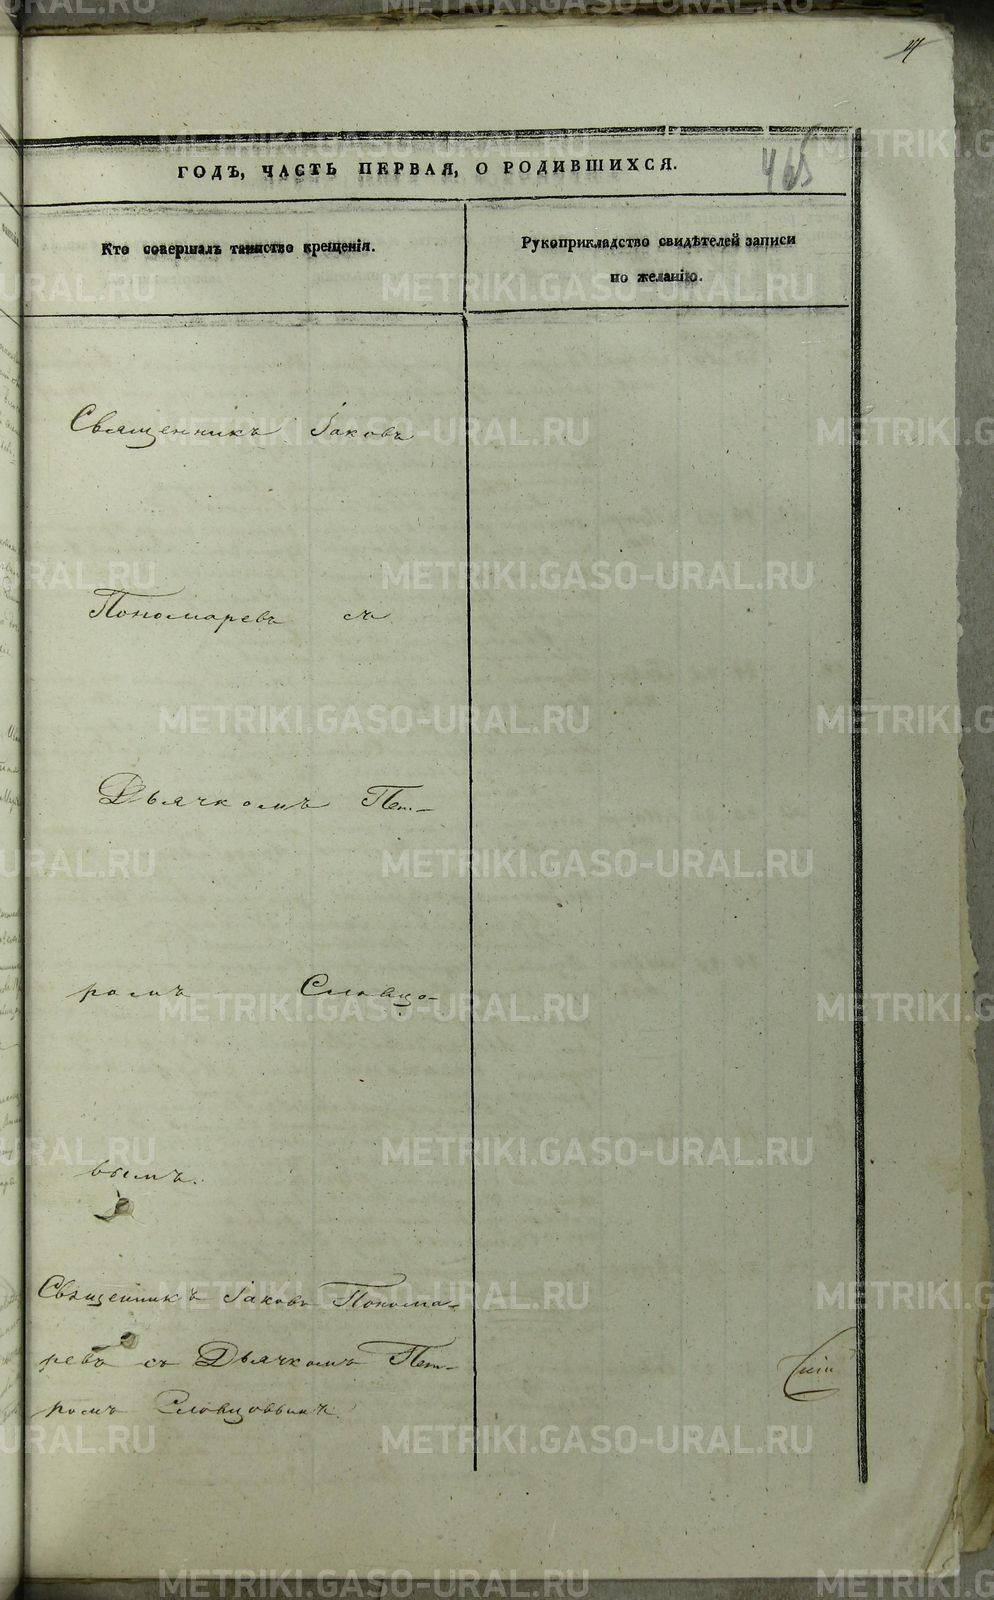 465
ГОДЪ, ЧАСТЬ ПЕРВАЯ, О РОДИВШИХСЯ.
Кто совершалъ таинство крещенія.
Рукоприкладство свидѣтелей записи
по желанію.
Священникъ Іаковъ
Пономаревъ съ
Дьячкомъ Пет-
ромъ Словцо-
вымъ.
Священникъ Іаковъ Понома-
ревъ съ Дьячкомъ Пет-
ромъ Словцовымъ.
METRIKI.GASO-URAL.RU